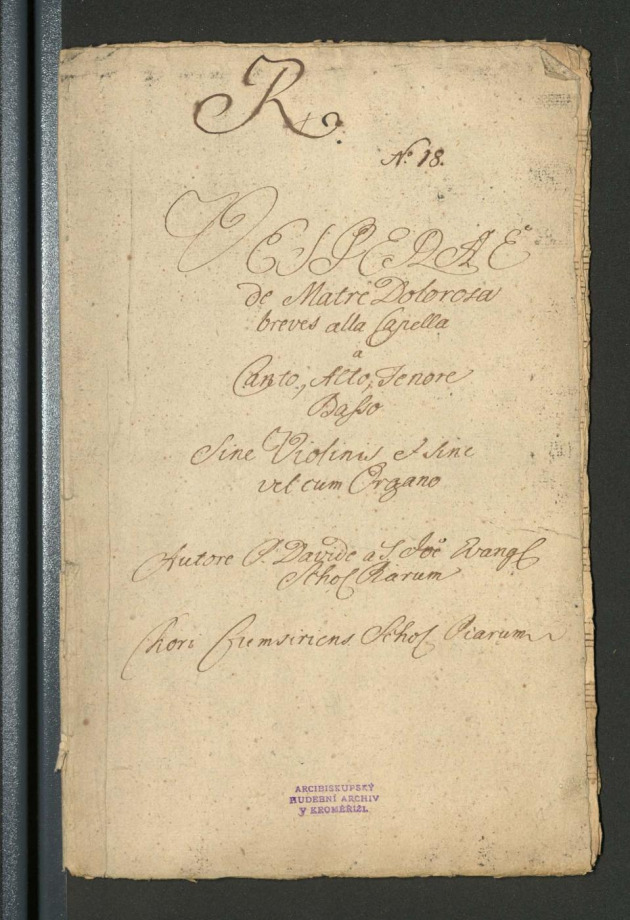 R
No 18.
VESPERAE
de Matre Dolorosa
breves alla Capella
a
Canto, Alto, Tenore
Basso
Sine Violinis et sine
vel cum Organo
Autore P. Davide a S. Joē Evang
Schol Piarum
Chori Cremsiriens Schol Piarum
ARCIBISKUPSKÝ
HUDEBNÍ ARCHIV
V KROMĚŘÍŽI.